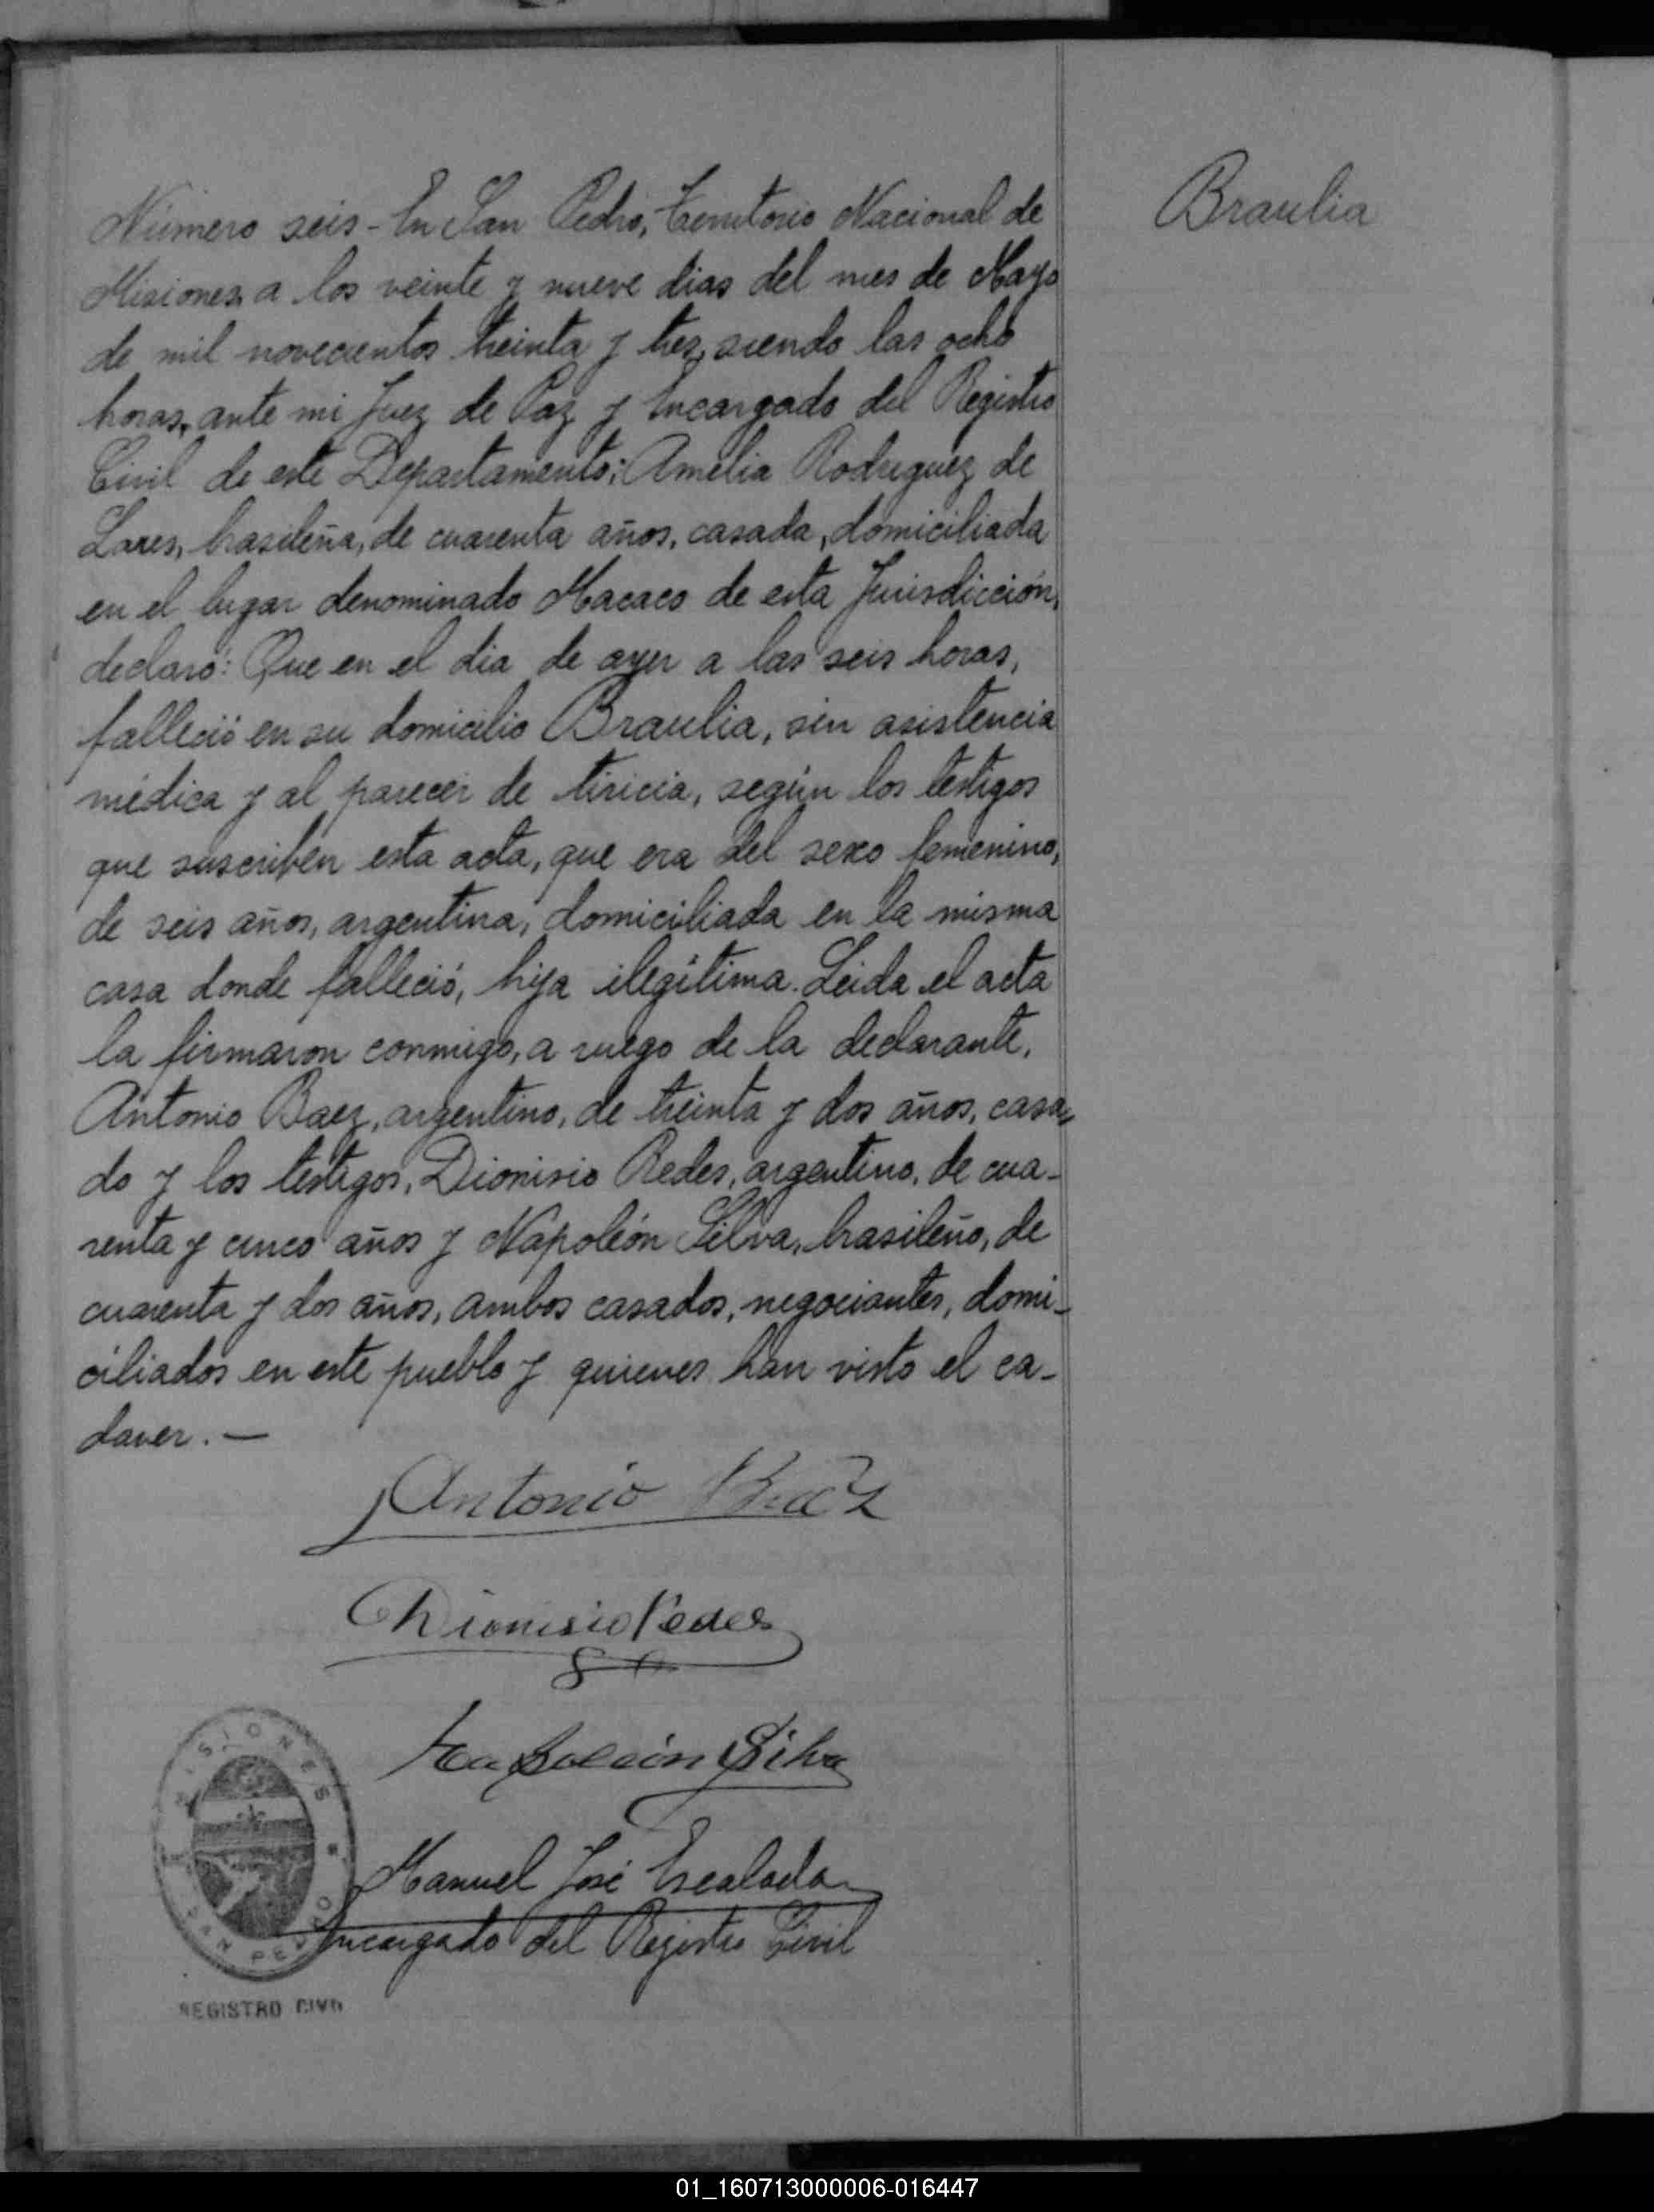 Número seis - En San Pedro, Territorio Nacional de
Misiones, a los veinte y nueve dias del mes de Mayo
de mil novecientos treinta y tres, siendo las ocho
horas, ante mi Juez de Paz y Encargado del Registro
Civil de este Departamento: Amelia Rodriguez de
Lares, brasileña, de cuarenta años, casada, domiciliada
en el lugar denominado Macaco de esta Jurisdicción,
declaró: Que en el dia de ayer a las seis horas,
falleció en su domicilio Braulia, sin asistencia
médica y al parecer de tiricia, según los testigos
que suscriben esta acta, que era del sexo femenino,
de seis años, argentina, domiciliada en la misma
casa donde falleció, hija ilegítima. Leida el acta
la firmaron conmigo, a ruego de la declarante,
Antonio Baez, argentino, de treinta y dos años, casa-
do y los testigos, Dionisio Redes, argentino, de cua-
renta y cinco años y Napoleón Silva, brasileño, de
cuarenta y dos años, ambos casados, negociantes, domi-
ciliados en este pueblo y quienes han visto el ca-
daver. —
Antonio Baez
Dionisio Redes
Napoleón Silva
Manuel José Escalada
Encargado del Registro Civil
MISIONES
SAN PEDRO
REGISTRO CIVIL
Braulia
01_160713000006-016447